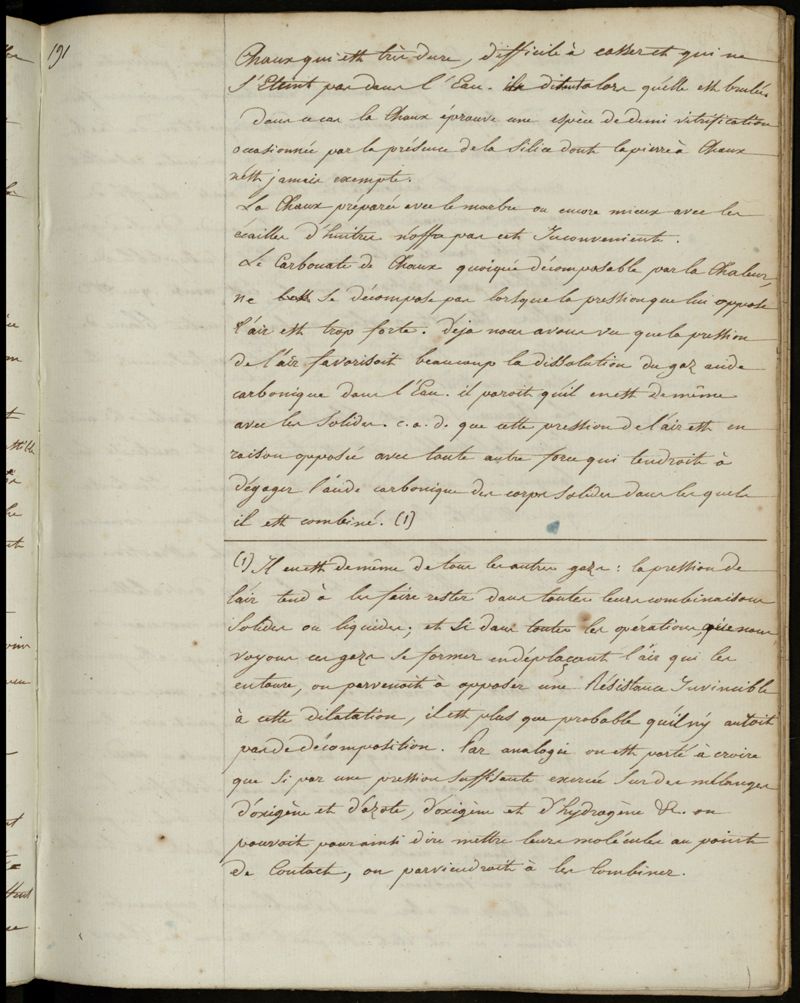 191
Chaux qui est très dure, difficile à casser et qui ne
s'Eteint pas dans l'Eau. ils disent alors qu'elle est brulée
Dans ce cas la Chaux éprouve une espèce de demi vitrification
occasionnée par la présence de la Silice dont la pierre à Chaux
n'est jamais exempte.
La Chaux préparée avec le marbre ou encore mieux avec les
ecailles d'huitres n'offre pas cet Inconvenient.
Le Carbonate de Chaux quoique décomposable par la Chaleur,
ne se décompose pas lorsque la pression que lui oppose
l'air est trop forte. Déja nous avons vu que la pression
de l'air favorisoit beaucoup la dissolution du gaz acide
carbonique dans l'Eau. il paroit qu'il en est de même
avec les Solides. c. a. d. que cette pression de l'air est en
raison opposée avec toute autre force qui tendroit à
dégager l'acide carbonique des corps Solides dans lesquels
il est combiné. (1)
(1) Il en est de même de tous les autres gazs : la pression de
l'air tend à les faire rester dans toutes leurs combinaisons
Solides ou liquides; et si dans toutes les opérations que nous
voyons ces gazs se former en déplaçant l'air qui les
entoure, on parvenoit à opposer une Résistance Invincible
à cette dilatation, il est plus que probable qu'il n'y auroit
pas de décomposition. Par analogie on est porté à croire
que si par une pression suffisante exercée sur des mélanges
d'oxigène et d'azote, d'oxigène et d'hydrogène &c. on
pouvoit pour ainsi dire mettre leurs molécules au point
de Contact, on parviendroit à les Combiner.